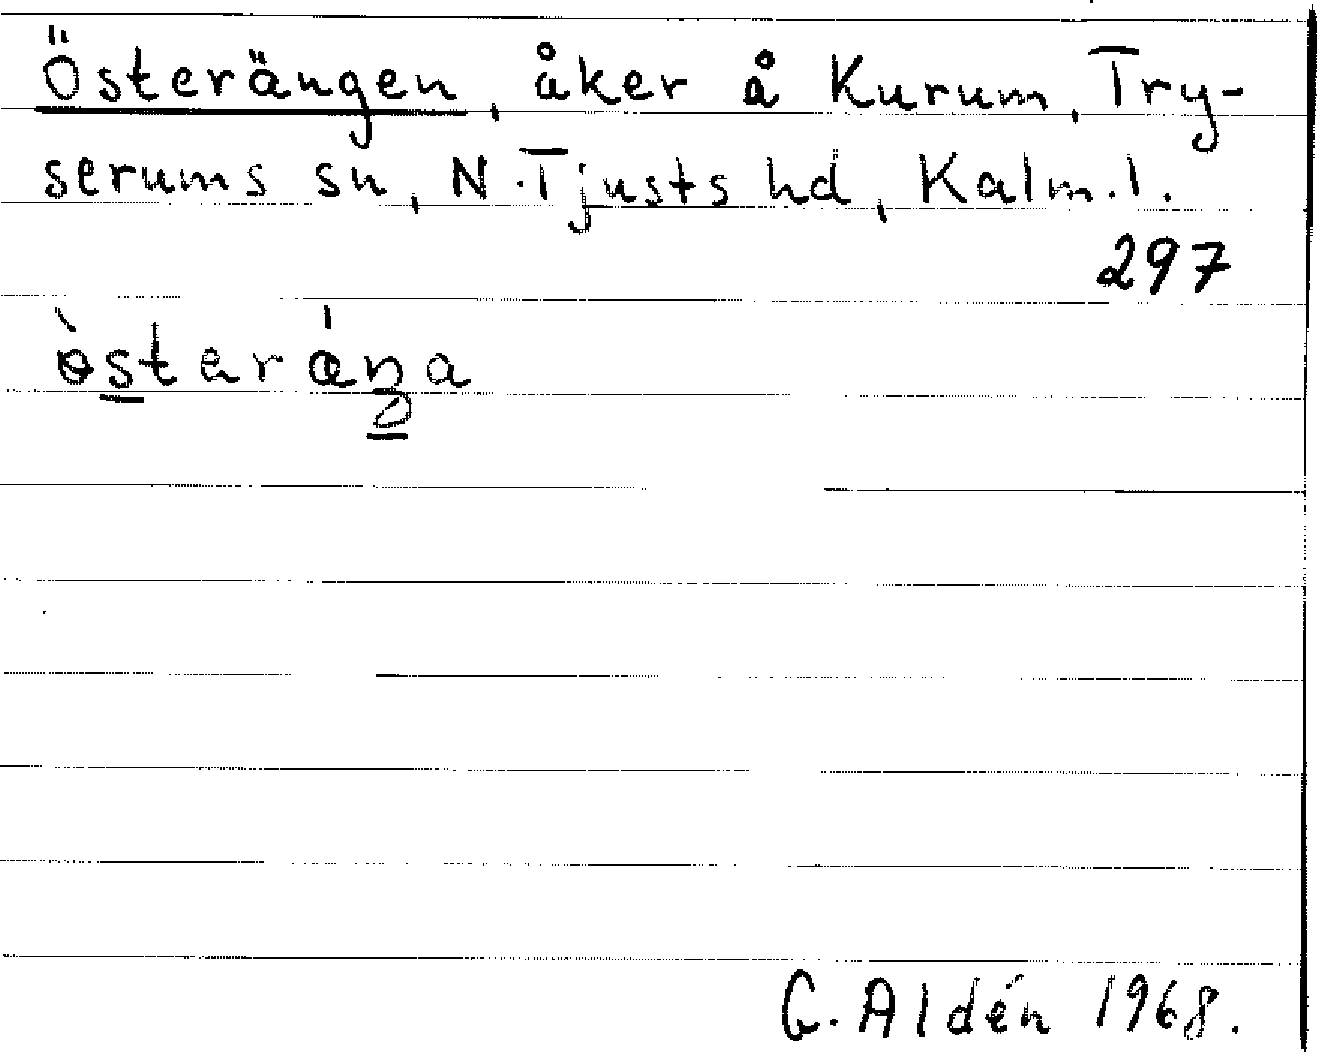 Österängen, åker å Kurum, Try-
serums sn, N. Tjusts hd, Kalm. l.
297
G. Aldén 1968.